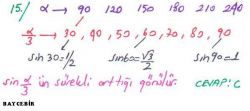 15./ α → 90 120 150 180 210 240
α/3 → 30, 40, 50, 60, 70, 80, 90
sin30=1/2 sin60=√3/2 sin90=1
sin α/3 ün sürekli arttığı görülür. CEVAP: C
BAYCEBİR